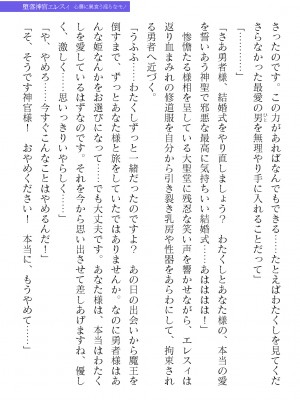 堕落神官エレスィ 心臓に淫虫で堕ちたセイ
さったのです。この力があればなんでもできる……たとえばわたくしを見てくだ
さらなかった最愛の男を無理やり手に入れることだって」
「さあ勇者様、結婚式をやり直しましょう？　わたくしとあなた様の、本当の愛
を誓いあう神聖で邪悪な最高に気持ちいい結婚式……あははは！」
惨憺たる様相を呈している大聖堂に残忍な笑い声を響かせながら、エレスィは
返り血まみれの修道服を自分から引き裂き乳房や性器をあらわにして、拘束され
る勇者へ近づく。
「うふふ……わたくしずっと一緒だったのですよ？　あの日の出会いから魔王を
倒すまで、ずっとあなた様と旅をしていたではありませんか。なのに勇者様はあ
んな姫なんかをお選びになって……でも大丈夫です。あなた様は、本当はわたく
しを愛しているはずなのです。それを今から思い出させて差しあげますね、優し
く、激しく……思いっきりいやらしく……」
「や、やめろ……今すぐこんなことはやめるんだ！」
「そ、そうです神官様！　おやめください！　本当に、もうやめて……」